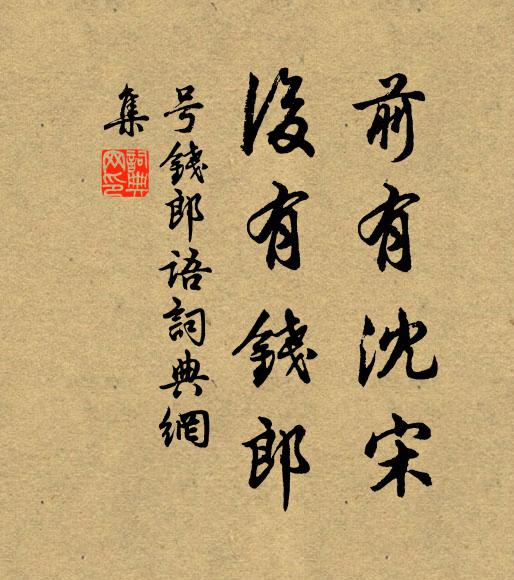 前有沈宋
後有錢郎
号錢郎語詞典網
集
詞典網印